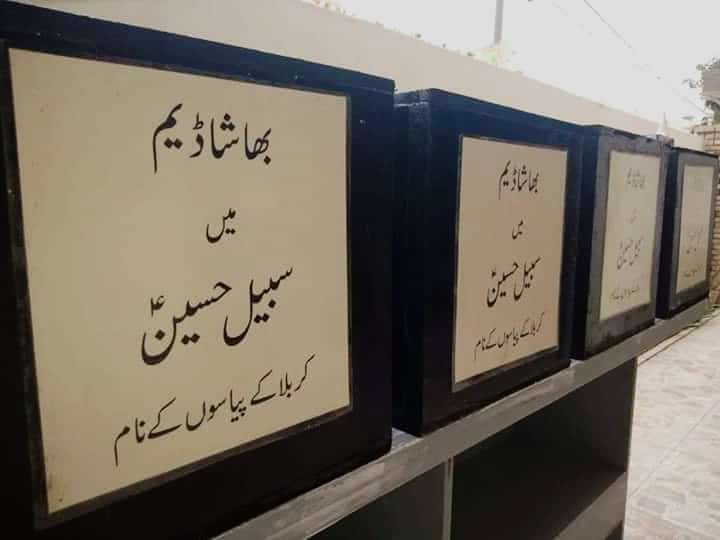 بھاشا ڈیم
میں
سبیل حسینؑ
کربلا کے پیاسوں کے نام
بھاشا ڈیم
میں
سبیل حسینؑ
کربلا کے پیاسوں کے نام
بھاشا ڈیم
میں
سبیل حسینؑ